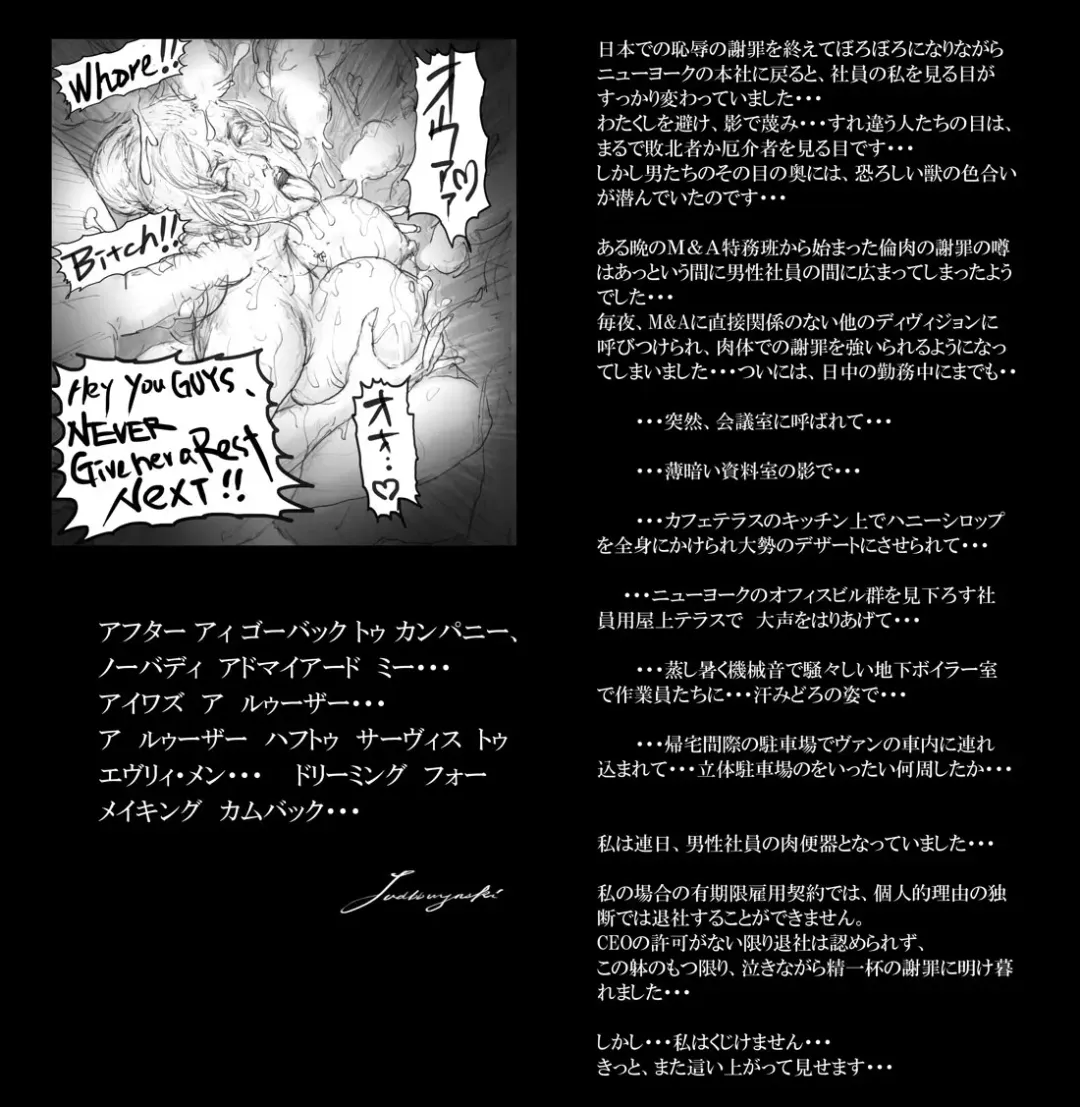 Whore!!
オゥアァ♡
Bitch!!
Hey You GUYS、
NEVER
Give her a Rest
NEXT!!
オォ…♡
アフター アィ ゴーバック トゥ カンパニー、
ノーバディ アドマイアード ミー・・・
アイワズ ア ルゥーザー・・・
ア ルゥーザー ハフトゥ サーヴィス トゥ
エヴリィ・メン・・・ ドリーミング フォー
メイキング カムバック・・・
日本での恥辱の謝罪を終えてぼろぼろになりながら
ニューヨークの本社に戻ると、社員の私を見る目が
すっかり変わっていました・・・
わたくしを避け、影で蔑み・・・すれ違う人たちの目は、
まるで敗北者か厄介者を見る目です・・・
しかし男たちのその目の奥には、恐ろしい獣の色合い
が潜んでいたのです・・・
ある晩のＭ＆Ａ特務班から始まった倫肉の謝罪の噂
はあっという間に男性社員の間に広まってしまったよう
でした・・・
毎夜、M&Aに直接関係のない他のディヴィジョンに
呼びつけられ、肉体での謝罪を強いられるようになっ
てしまいました・・・ついには、日中の勤務中にまでも・・
・・・突然、会議室に呼ばれて・・・
・・・薄暗い資料室の影で・・・
・・・カフェテラスのキッチン上でハニーシロップ
を全身にかけられ大勢のデザートにさせられて・・・
・・・ニューヨークのオフィスビル群を見下ろす社
員用屋上テラスで 大声をはりあげて・・・
・・・蒸し暑く機械音で騒々しい地下ボイラー室
で作業員たちに・・・汗みどろの姿で・・・
・・・帰宅間際の駐車場でヴァンの車内に連れ
込まれて・・・立体駐車場のをいったい何周したか・・・
私は連日、男性社員の肉便器となっていました・・・
私の場合の有期限雇用契約では、個人的理由の独
断では退社することができません。
CEOの許可がない限り退社は認められず、
この躰のもつ限り、泣きながら精一杯の謝罪に明け暮
れました・・・
しかし・・・私はくじけません・・・
きっと、また這い上がって見せます・・・